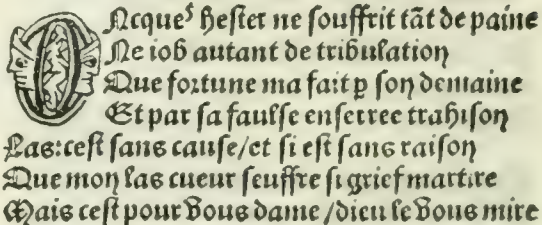 ONcqueˢ hester ne souffrit tāt de paine
Ne iob autant de tribulation
Que fortune ma fait p son demaine
Et par sa faulse enferree trahison
Las:cest sans cause/et si est sans raison
Que mon las cueur seuffre si grief martire
Mais cest pour vous dame/dieu le vous mire